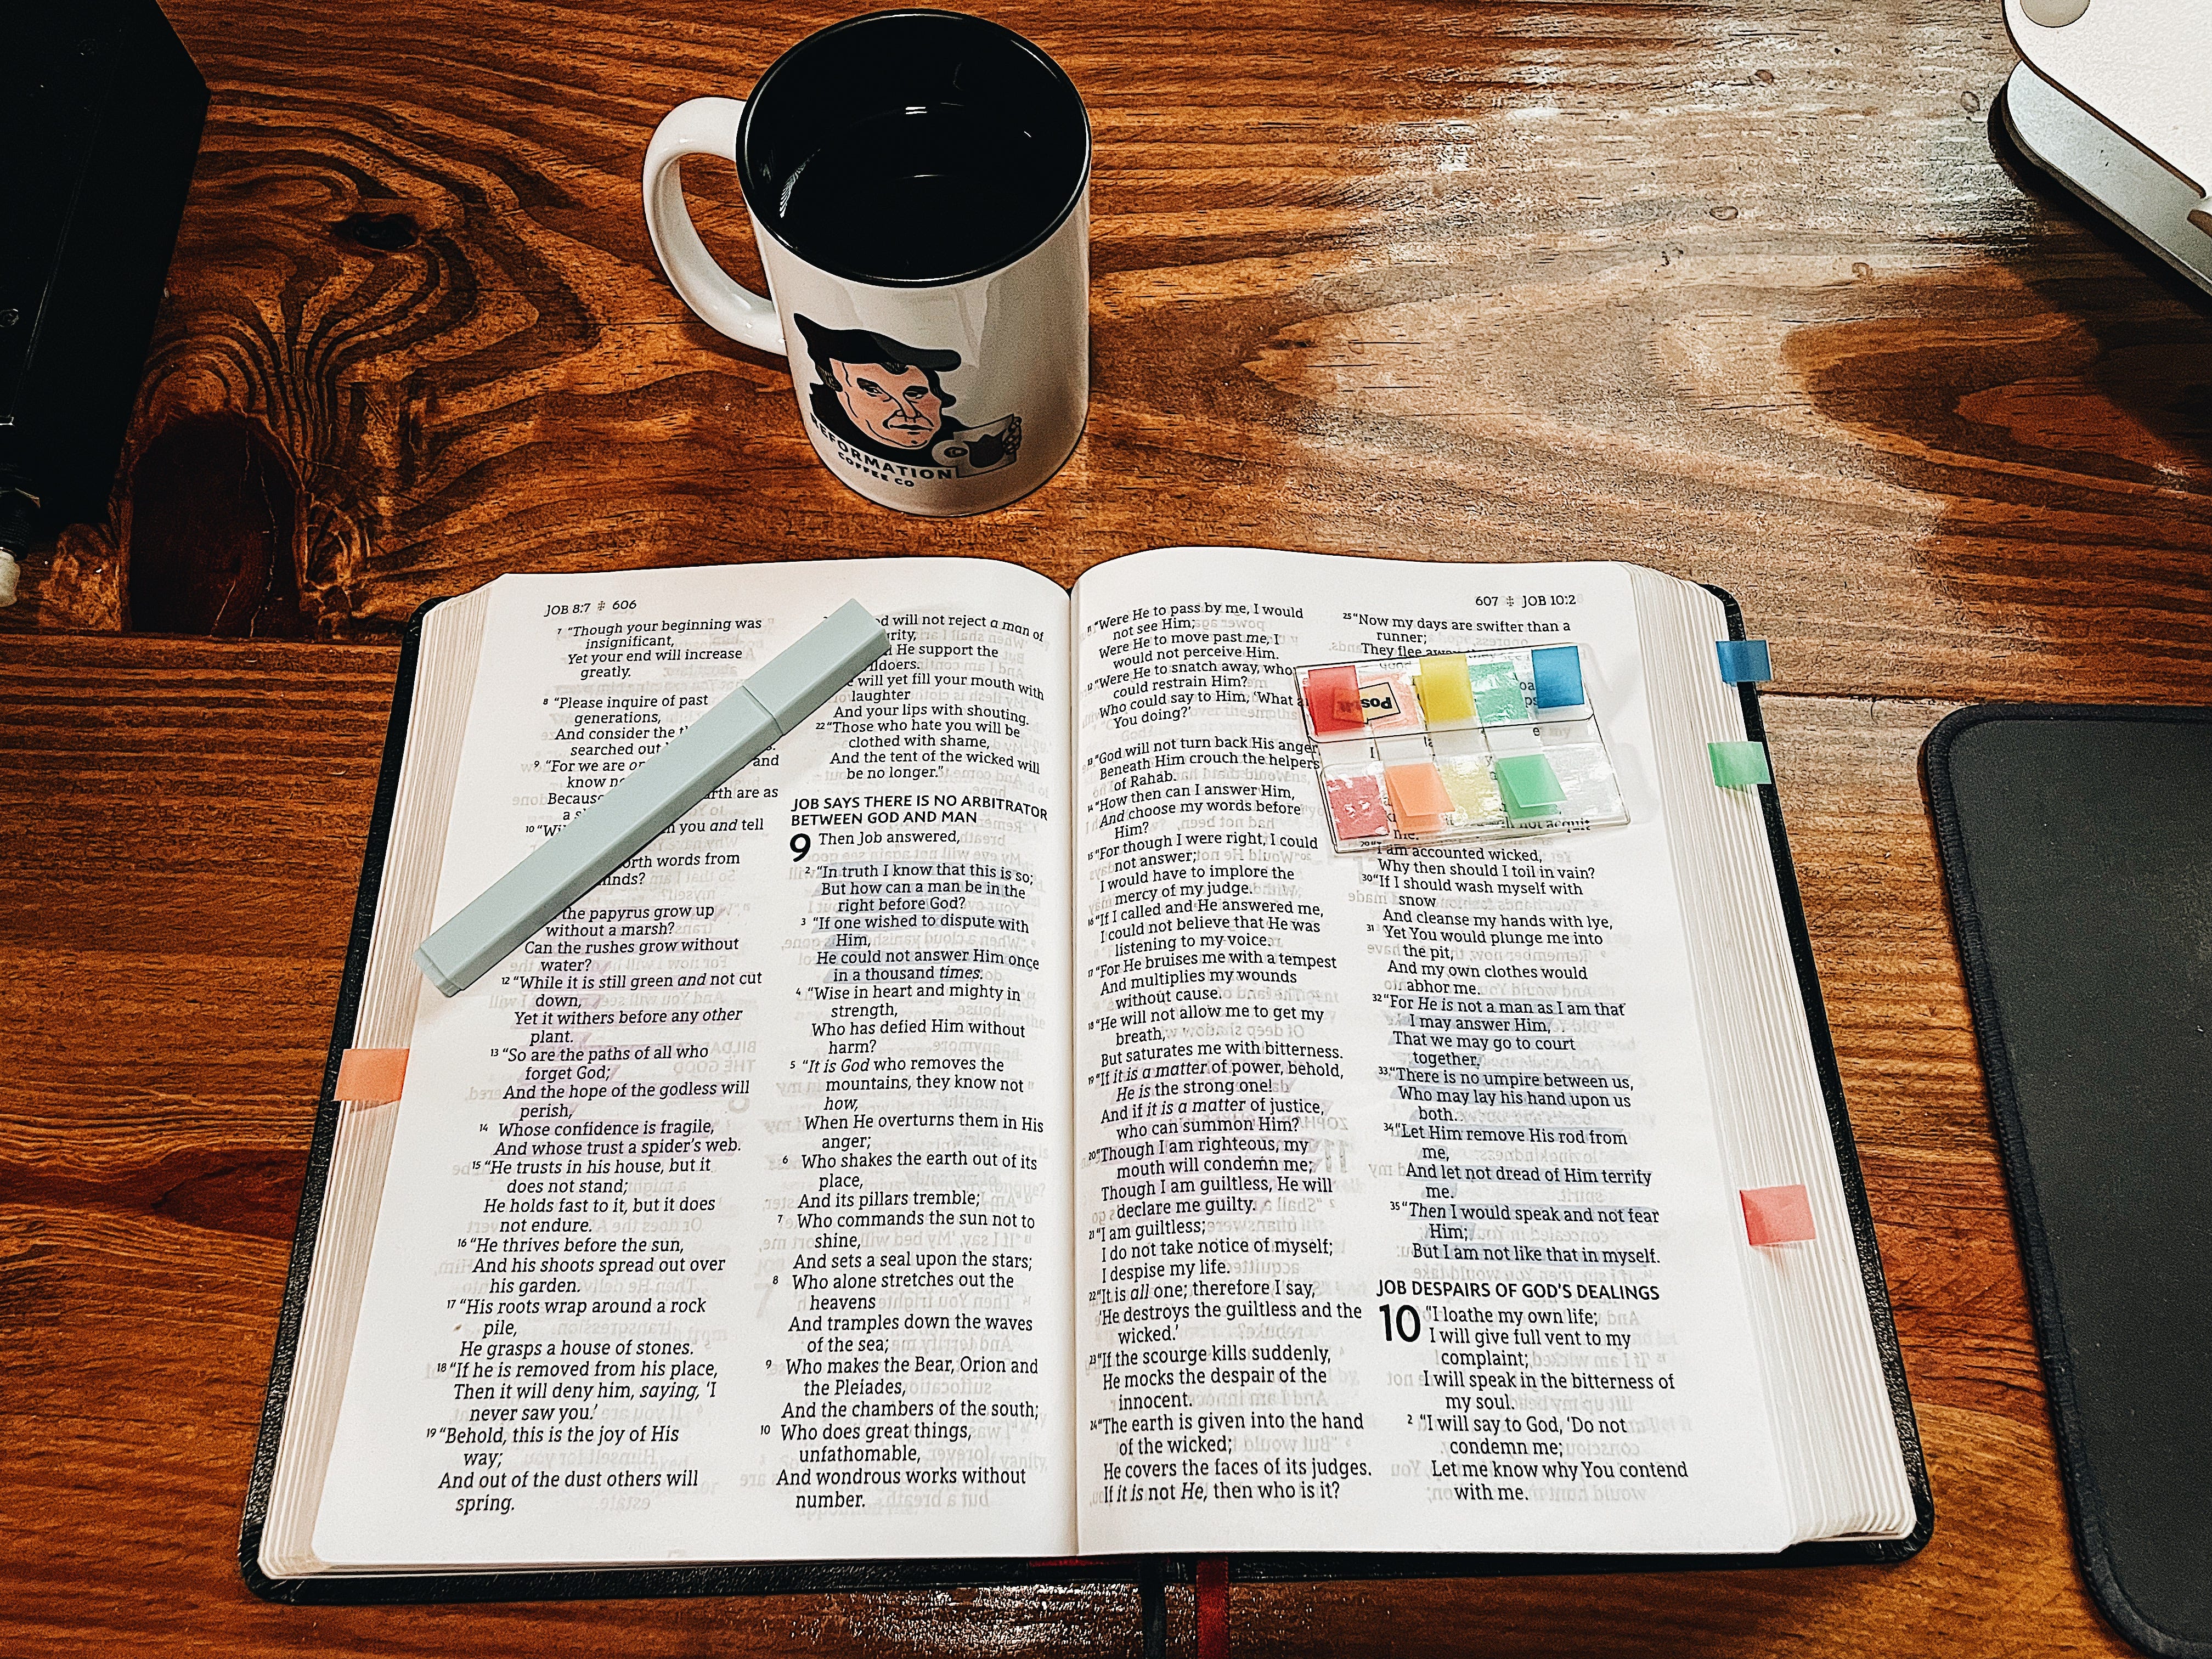 REFORMATION
COFFEE CO
JOB 8:7 ‡ 606
7 “Though your beginning was
insignificant,
Yet your end will increase
greatly.
8 “Please inquire of past
generations,
And consider the
searched out
9 “For we are and
know
Because are as
a
10 you and tell
words from
the papyrus grow up
without a marsh?
Can the rushes grow without
water?
12 “While it is still green and not cut
down,
Yet it withers before any other
plant.
13 “So are the paths of all who
forget God;
And the hope of the godless will
perish,
14 Whose confidence is fragile,
And whose trust a spider’s web.
15 “He trusts in his house, but it
does not stand;
He holds fast to it, but it does
not endure.
16 “He thrives before the sun,
And his shoots spread out over
his garden.
17 “His roots wrap around a rock
pile,
He grasps a house of stones.
18 “If he is removed from his place,
Then it will deny him, saying, ‘I
never saw you.’
19 “Behold, this is the joy of His
way;
And out of the dust others will
spring.
will not reject a man of
He support the
will yet fill your mouth with
laughter
And your lips with shouting.
22 “Those who hate you will be
clothed with shame,
And the tent of the wicked will
be no longer.”
JOB SAYS THERE IS NO ARBITRATOR
BETWEEN GOD AND MAN
9 Then Job answered,
2 “In truth I know that this is so;
But how can a man be in the
right before God?
3 “If one wished to dispute with
Him,
He could not answer Him once
in a thousand times.
4 “Wise in heart and mighty in
strength,
Who has defied Him without
harm?
5 “It is God who removes the
mountains, they know not
how,
When He overturns them in His
anger;
6 Who shakes the earth out of its
place,
And its pillars tremble;
7 Who commands the sun not to
shine,
And sets a seal upon the stars;
8 Who alone stretches out the
heavens
And tramples down the waves
of the sea;
9 Who makes the Bear, Orion and
the Pleiades,
And the chambers of the south;
10 Who does great things,
unfathomable,
And wondrous works without
number.
607 ‡ JOB 10:2
11 “Were He to pass by me, I would
not see Him;
Were He to move past me, I
would not perceive Him.
12 “Were He to snatch away, who
could restrain Him?
Who could say to Him, ‘What
You doing?’
13 “God will not turn back His anger
Beneath Him crouch the helpers
of Rahab.
14 “How then can I answer Him,
And choose my words before
Him?
15 “For though I were right, I could
not answer;
I would have to implore the
mercy of my judge.
16 “If I called and He answered me,
I could not believe that He was
listening to my voice.
17 “For He bruises me with a tempest
And multiplies my wounds
without cause.
18 “He will not allow me to get my
breath,
But saturates me with bitterness.
19 “If it is a matter of power, behold,
He is the strong one!
And if it is a matter of justice,
who can summon Him?
20 “Though I am righteous, my
mouth will condemn me;
Though I am guiltless, He will
declare me guilty.
21 “I am guiltless;
I do not take notice of myself;
I despise my life.
22 “It is all one; therefore I say,
‘He destroys the guiltless and the
wicked.’
23 “If the scourge kills suddenly,
He mocks the despair of the
innocent.
24 “The earth is given into the hand
of the wicked;
He covers the faces of its judges.
If it is not He, then who is it?
25 “Now my days are swifter than a
runner;
They flee away,
Post-it
not acquit
me.
I am accounted wicked,
Why then should I toil in vain?
30 “If I should wash myself with
snow
And cleanse my hands with lye,
31 Yet You would plunge me into
the pit,
And my own clothes would
abhor me.
32 “For He is not a man as I am that
I may answer Him,
That we may go to court
together.
33 “There is no umpire between us,
Who may lay his hand upon us
both.
34 “Let Him remove His rod from
me,
And let not dread of Him terrify
me.
35 “Then I would speak and not fear
Him;
But I am not like that in myself.
JOB DESPAIRS OF GOD’S DEALINGS
10 “I loathe my own life;
I will give full vent to my
complaint;
I will speak in the bitterness of
my soul.
2 “I will say to God, ‘Do not
condemn me;
Let me know why You contend
with me.